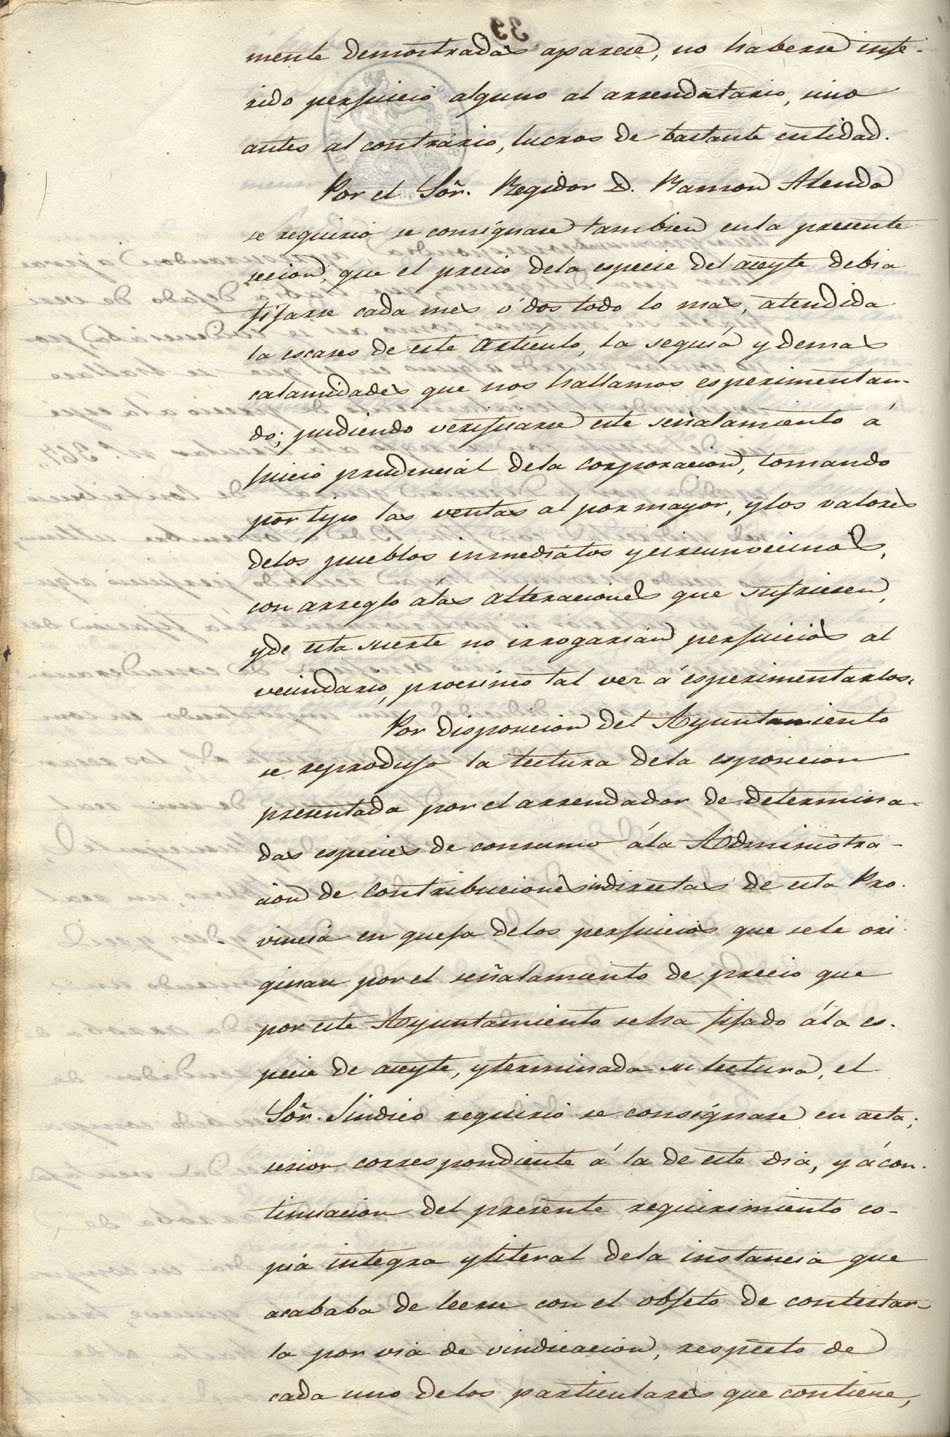 mente demostradas aparece, no haberse infe-
rido perjuicio alguno al arrendatario, sino
antes al contrario, lucros de bastante entidad.
Por el Sōr. Regidor D. Ramon Alenda
se requirió se consignase tambien en la presente
secion, que el precio dela especie del aceyte debia
fijarse cada mes ó dos todo lo mas, atendida
la escases de este Artículo, la sequía y demas
calamidades que nos hallamos esperimentan-
do; pudiendo verificarse este señalamiento á
juicio prudencial dela corporacion, tomando
por tipo las ventas al pormayor, y los valores
delos pueblos inmediatos y circunvecinos,
con arreglo álas alteraciones que sufriesen,
y de esta suerte no irrogarian perjuicios al
vecindario, procsimo tal vez á esperimentarlos.
Por disposicion del Ayuntamiento
se reprodujo la lectura dela esposicion
presentada por el arrendador de determina-
das especies de consumo ála Administra-
cion de contribuciones indirectas de esta Pro-
vincia en queja delos perjuicios que sele ori-
ginan por el señalamiento de precio que
por este Ayuntamiento seha fijado ála es-
pecie de aceyte, y terminada su lectura, el
Sōr. Sindico requirió se consignase en acta,
sesion correspondiente á la de este dia, y á con-
tinuacion del presente requirimiento co-
pia integra y literal dela instancia que
acababa de leerse con el objeto de contestar-
la por via de vindicacion, respecto de
cada uno delos particulares que contiene,